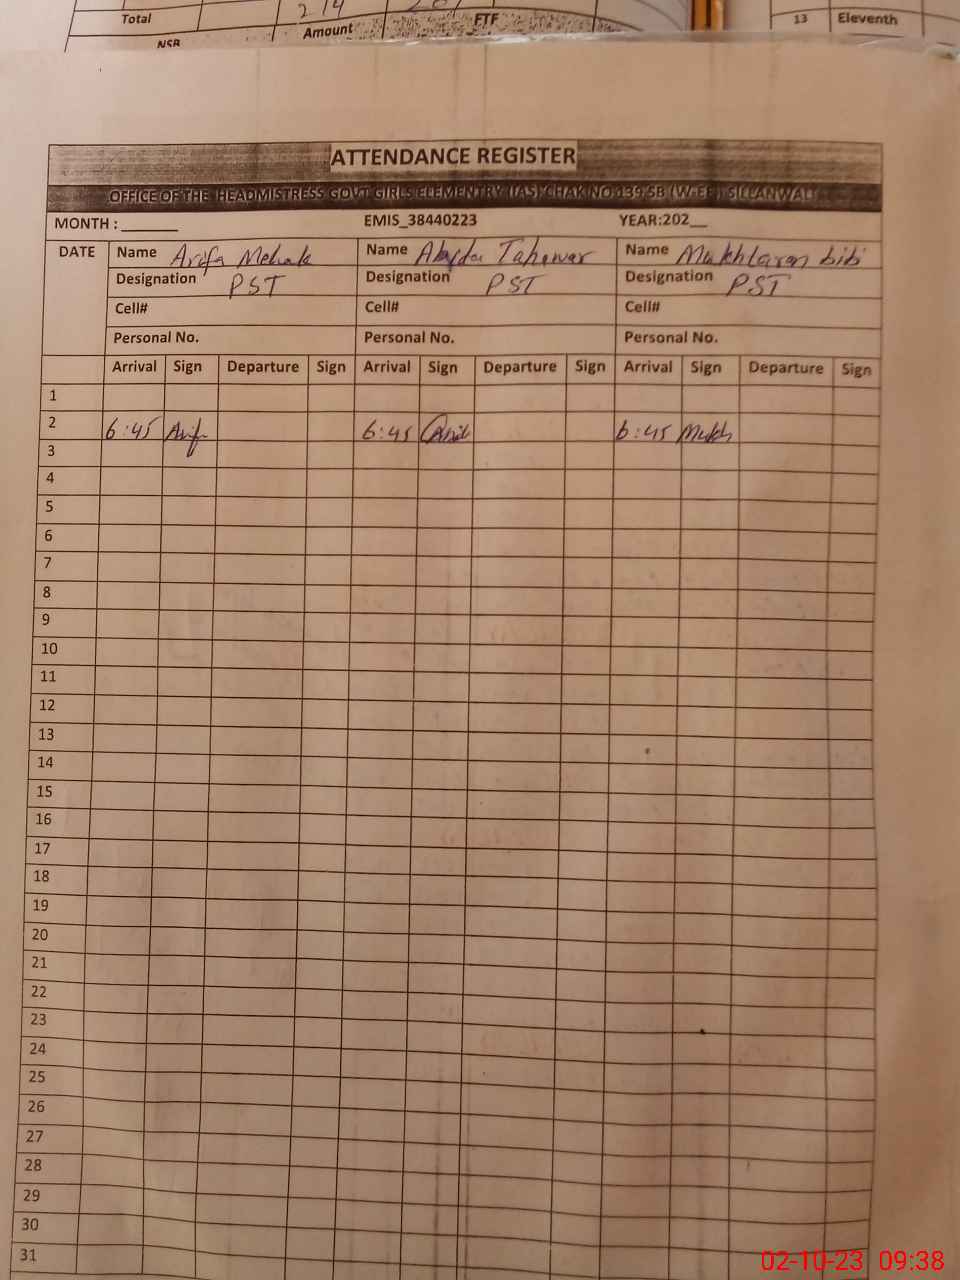 Total 214
Amount FTF
NSB
13 Eleventh
ATTENDANCE REGISTER
OFFICE OF THE HEADMISTRESS GOVT GIRLS ELEMENTRY (IAS) CHAK NO 139 SB (W-EF) SILLANWALI
MONTH : ______ EMIS_38440223 YEAR:202__
DATE Name Arifa Mehak Name Tahawar Name Mukhtaran bibi
Designation PST Designation PST Designation PST
Cell# Cell# Cell#
Personal No. Personal No. Personal No.
Arrival Sign Departure Sign Arrival Sign Departure Sign Arrival Sign Departure Sign
1
2 6:45 Arif 6:45 6:45 Mukh
3
4
5
6
7
8
9
10
11
12
13
14
15
16
17
18
19
20
21
22
23
24
25
26
27
28
29
30
31
02-10-23 09:38